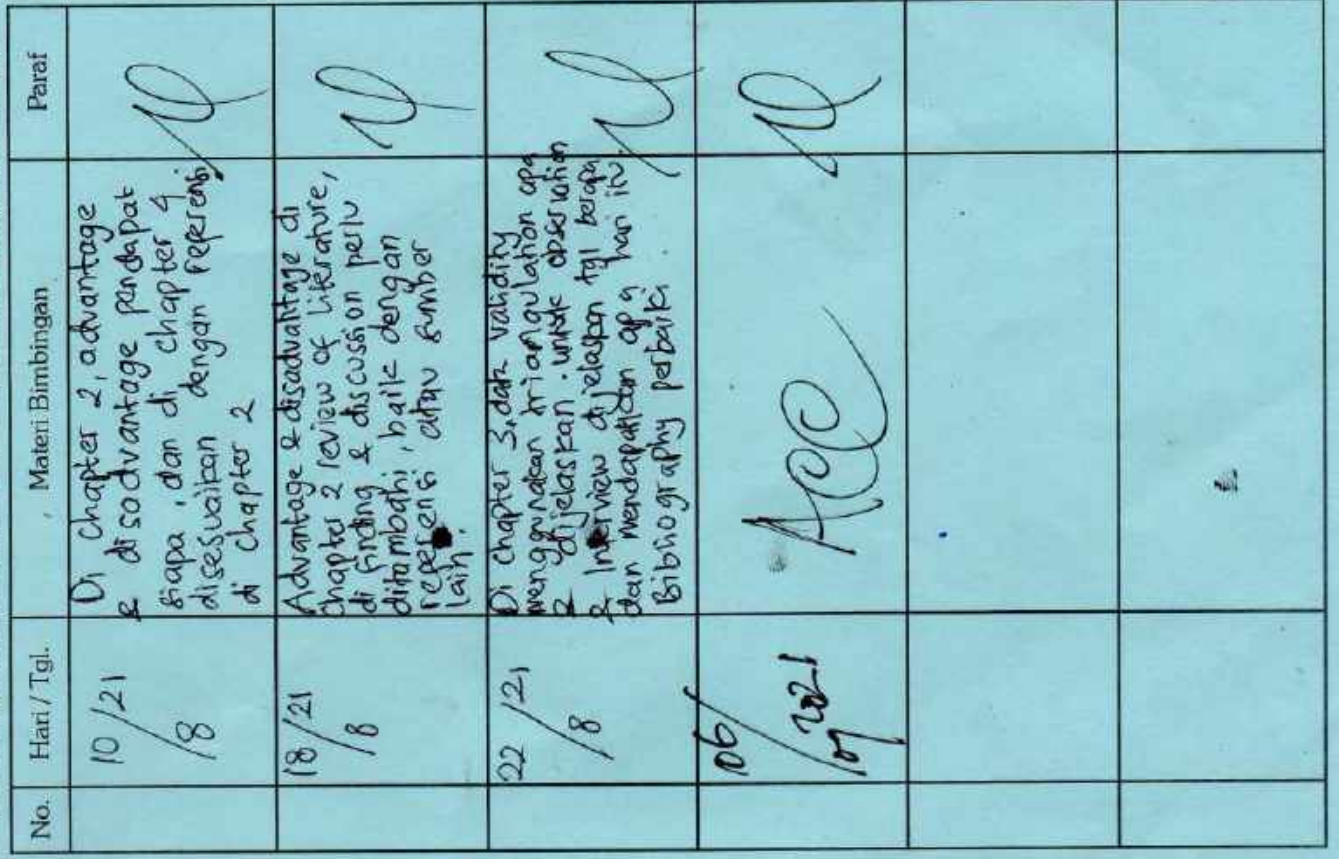 No. Hari / Tgl. Materi Bimbingan Paraf
10/8/21
Di chapter 2, advantage
& disadvantage pendapat
siapa, dan di chapter 4
disesuaikan dengan referensi
di chapter 2
18/8/21
Advantage & disadvantage di
chapter 2 review of literature,
di finding & discussion perlu
ditambahi, baik dengan
referensi atau sumber
lain.
22/8/21
Di chapter 3, data validity
menggunakan triangulation apa
& dijelaskan. untuk observation
& Interview dijelaskan tgl berapa
dan mendapatkan apa hari itu.
Bibliography perbaiki
06/09 2021
ACC